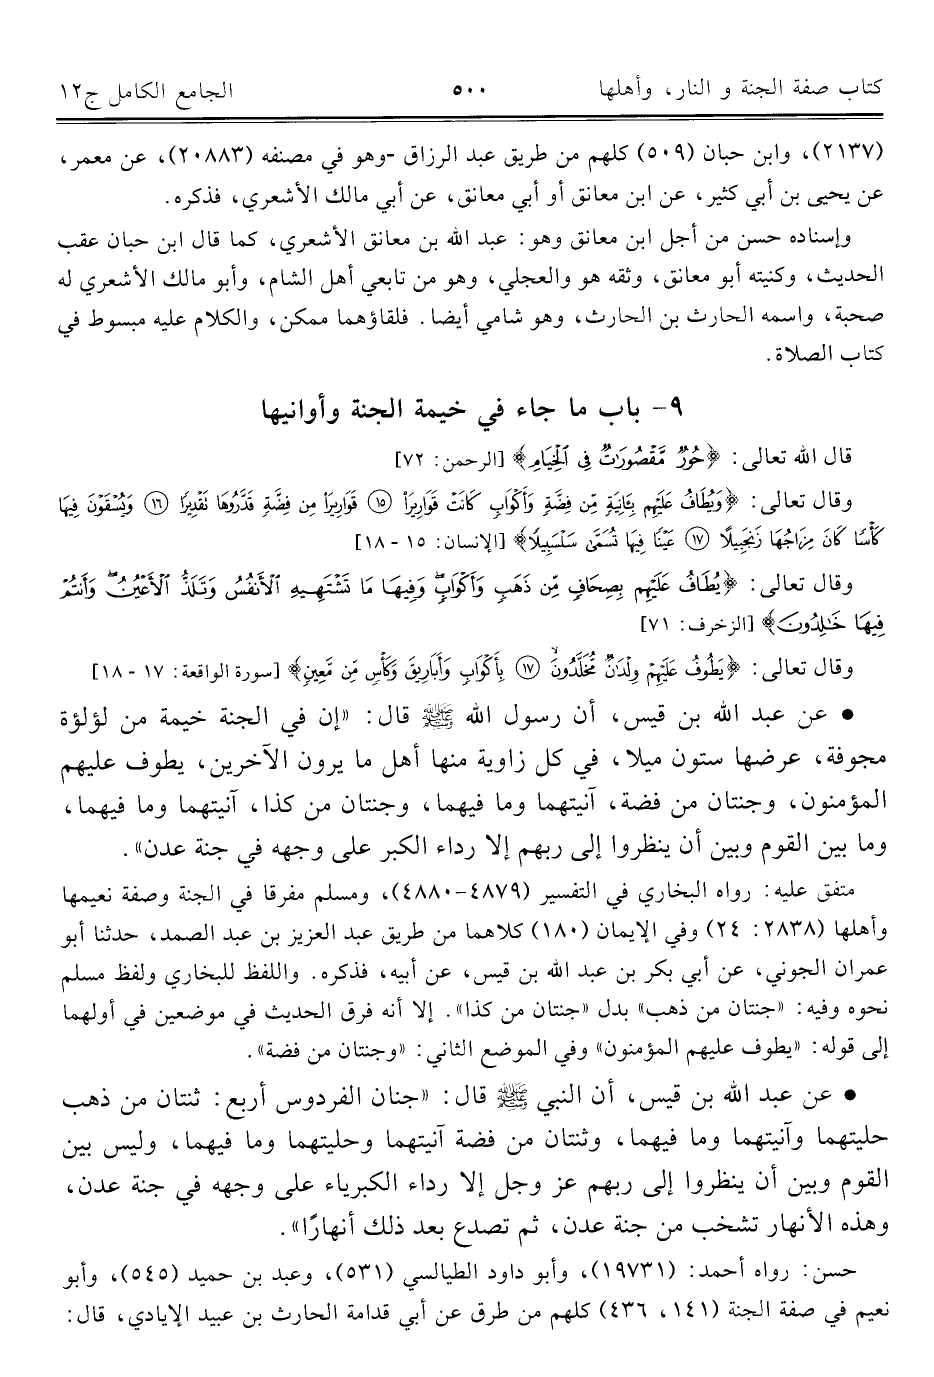 كتاب صفة الجنة و النار، وأهلها ٥٠٠ الجامع الكامل ج١٢
(٢١٣٧)، وابن حبان (٥٠٩) كلهم من طريق عبد الرزاق -وهو في مصنفه (٢٠٨٨٣)، عن معمر،
عن يحيى بن أبي كثير، عن ابن معانق أو أبي معانق، عن أبي مالك الأشعري، فذكره.
وإسناده حسن من أجل ابن معانق وهو: عبد الله بن معانق الأشعري، كما قال ابن حبان عقب
الحديث، وكنيته أبو معانق، وثقه هو والعجلي، وهو من تابعي أهل الشام، وأبو مالك الأشعري له
صحبة، واسمه الحارث بن الحارث، وهو شامي أيضا. فلقاؤهما ممكن، والكلام عليه مبسوط في
كتاب الصلاة.
٩- باب ما جاء في خيمة الجنة وأوانيها
قال الله تعالى: ﴿حُورٌ مَّقْصُورَاتٌ فِي الْخِيَامِ﴾ [الرحمن: ٧٢]
وقال تعالى: ﴿وَيُطَافُ عَلَيْهِم بِآنِيَةٍ مِّن فِضَّةٍ وَأَكْوَابٍ كَانَتْ قَوَارِيرَا ١٥ قَوَارِيرَا مِن فِضَّةٍ قَدَّرُوهَا نَقْدِيرًا ١٦ وَيُسْقَوْنَ فِيهَا
كَأْسًا كَانَ مِزَاجُهَا زَنجَبِيلًا ١٧ عَيْنًا فِيهَا تُسَمَّى سَلْسَبِيلًا﴾ [الإنسان: ١٥ - ١٨]
وقال تعالى: ﴿يُطَافُ عَلَيْهِم بِصِحَافٍ مِّن ذَهَبٍ وَأَكْوَابٍ وَفِيهَا مَا تَشْتَهِيهِ الْأَنفُسُ وَتَلَذُّ الْأَعْيُنُ وَأَنتُمْ
فِيهَا خَالِدُونَ﴾ [الزخرف: ٧١]
وقال تعالى: ﴿يَطُوفُ عَلَيْهِمْ وِلْدَانٌ مُّخَلَّدُونَ ١٧ بِأَكْوَابٍ وَأَبَارِيقَ وَكَأْسٍ مِّن مَّعِينٍ﴾ [سورة الواقعة: ١٧ - ١٨]
● عن عبد الله بن قيس، أن رسول الله ﷺ قال: «إن في الجنة خيمة من لؤلؤة
مجوفة، عرضها ستون ميلا، في كل زاوية منها أهل ما يرون الآخرين، يطوف عليهم
المؤمنون، وجنتان من فضة، آنيتهما وما فيهما، وجنتان من كذا، آنيتهما وما فيهما،
وما بين القوم وبين أن ينظروا إلى ربهم إلا رداء الكبر على وجهه في جنة عدن».
متفق عليه: رواه البخاري في التفسير (٤٨٧٩-٤٨٨٠)، ومسلم مفرقا في الجنة وصفة نعيمها
وأهلها (٢٨٣٨: ٢٤) وفي الإيمان (١٨٠) كلاهما من طريق عبد العزيز بن عبد الصمد، حدثنا أبو
عمران الجوني، عن أبي بكر بن عبد الله بن قيس، عن أبيه، فذكره. واللفظ للبخاري ولفظ مسلم
نحوه وفيه: «جنتان من ذهب» بدل «جنتان من كذا». إلا أنه فرق الحديث في موضعين في أولهما
إلى قوله: «يطوف عليهم المؤمنون» وفي الموضع الثاني: «وجنتان من فضة».
● عن عبد الله بن قيس، أن النبي ﷺ قال: «جنان الفردوس أربع: ثنتان من ذهب
حليتهما وآنيتهما وما فيهما، وثنتان من فضة آنيتهما وحليتهما وما فيهما، وليس بين
القوم وبين أن ينظروا إلى ربهم عز وجل إلا رداء الكبرياء على وجهه في جنة عدن،
وهذه الأنهار تشخب من جنة عدن، ثم تصدع بعد ذلك أنهارًا».
حسن: رواه أحمد: (١٩٧٣١)، وأبو داود الطيالسي (٥٣١)، وعبد بن حميد (٥٤٥)، وأبو
نعيم في صفة الجنة (١٤١، ٤٣٦) كلهم من طرق عن أبي قدامة الحارث بن عبيد الإيادي، قال: